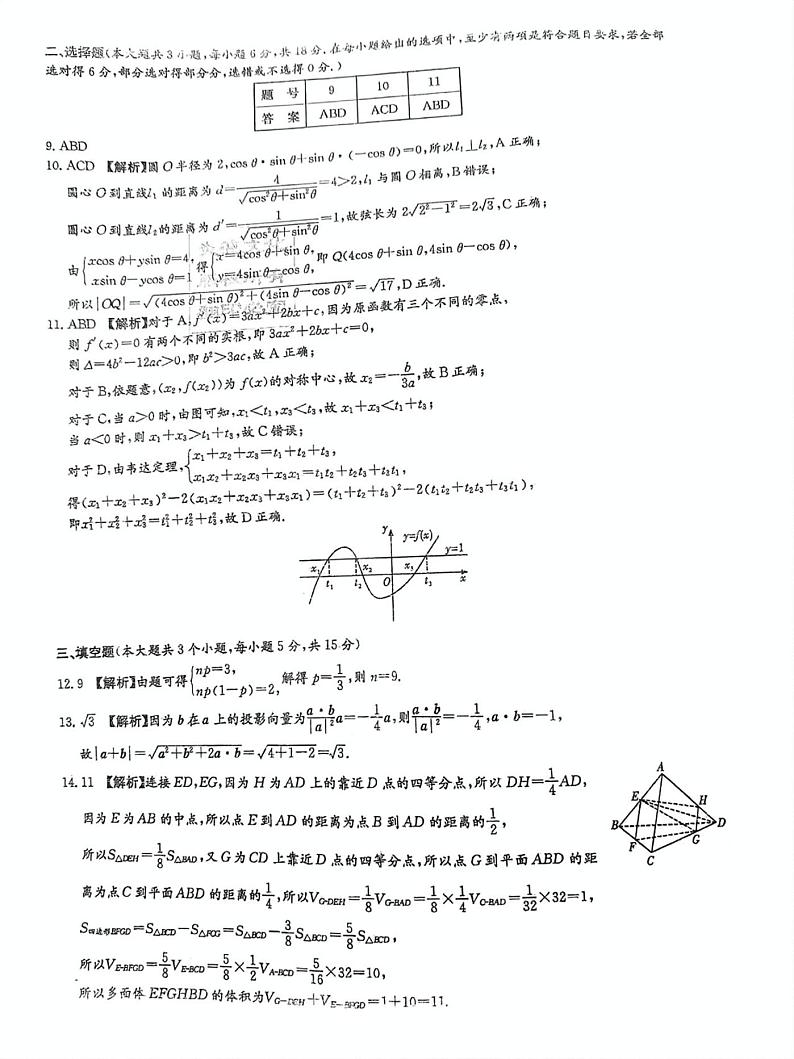 二、选择题(本大题共3小题,每小题6分,共18分.在每小题给出的选项中,至少有两项是符合题目要求,若全部
选对得6分,部分选对得部分分,选错或不选得0分.)
题 号 9 10 11
答 案 ABD ACD ABD
9. ABD
10. ACD 【解析】圆O半径为2,cos θ·sin θ+sin θ·(−cos θ)=0,所以l₁⊥l₂,A正确;
圆心O到直线l₁的距离为d=4/√(cos²θ+sin²θ)=4>2,l₁与圆O相离,B错误;
圆心O到直线l₂的距离为d′=1/√(cos²θ+sin²θ)=1,故弦长为2√(2²−1²)=2√3,C正确;
由{xcos θ+ysin θ=4, xsin θ−ycos θ=1 得{x=4cos θ+sin θ, y=4sin θ−cos θ, 即Q(4cos θ+sin θ,4sin θ−cos θ),
所以|OQ|=√((4cos θ+sin θ)²+(4sin θ−cos θ)²)=√17,D正确.
11. ABD 【解析】对于A,f′(x)=3ax²+2bx+c,因为原函数有三个不同的零点,
则f′(x)=0有两个不同的实根,即3ax²+2bx+c=0,
则Δ=4b²−12ac>0,即b²>3ac,故A正确;
对于B,依题意,(x₂,f(x₂))为f(x)的对称中心,故x₂=−b/3a,故B正确;
对于C,当a>0时,由图可知,x₁<t₁,x₃<t₃,故x₁+x₃<t₁+t₃;
当a<0时,则x₁+x₃>t₁+t₃,故C错误;
对于D,由韦达定理,{x₁+x₂+x₃=t₁+t₂+t₃, x₁x₂+x₂x₃+x₃x₁=t₁t₂+t₂t₃+t₃t₁,
得(x₁+x₂+x₃)²−2(x₁x₂+x₂x₃+x₃x₁)=(t₁+t₂+t₃)²−2(t₁t₂+t₂t₃+t₃t₁),
即x₁²+x₂²+x₃²=t₁²+t₂²+t₃²,故D正确.
y y=f(x)
y=1
x₁ x₂ x₃ x
t₁ t₂ O t₃
三、填空题(本大题共3个小题,每小题5分,共15分)
12. 9 【解析】由题可得{np=3, np(1−p)=2, 解得p=1/3,则n=9.
13. √3 【解析】因为b在a上的投影向量为(a·b/|a|²)a=−1/4a,则a·b/|a|²=−1/4,a·b=−1,
故|a+b|=√(a²+b²+2a·b)=√(4+1−2)=√3.
14. 11 【解析】连接ED,EG,因为H为AD上的靠近D点的四等分点,所以DH=1/4AD,
因为E为AB的中点,所以点E到AD的距离为点B到AD的距离的1/2,
所以S△DEH=1/8S△BAD,又G为CD上靠近D点的四等分点,所以点G到平面ABD的距
离为点C到平面ABD的距离的1/4,所以V_G-DEH=1/8V_G-BAD=1/8×1/4V_C-BAD=1/32×32=1,
S四边形BFGD=S△BCD−S△FCG=S△BCD−3/8S△BCD=5/8S△BCD,
所以V_E-BFGD=5/8V_E-BCD=5/8×1/2V_A-BCD=5/16×32=10,
所以多面体EFGHBD的体积为V_G-DEH+V_E-BFGD=1+10=11.
A
E H
B D
F G
C